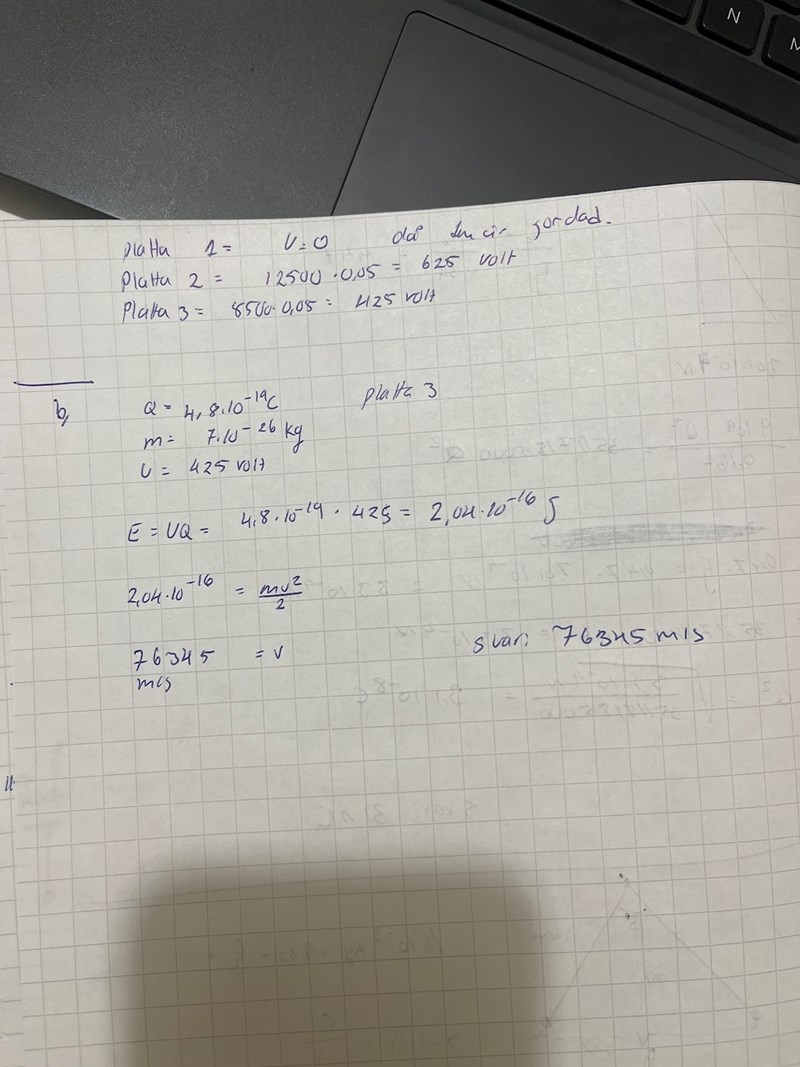 N
M
platta 1 = V=0 då den är jordad.
platta 2 = 12500 · 0,05 = 625 volt
Platta 3 = 8500 · 0,05 = 425 volt
b, Q = 4,8·10⁻¹⁹C platta 3
m = 7·10⁻²⁶ kg
U = 425 volt
E = UQ = 4,8·10⁻¹⁹ · 425 = 2,04·10⁻¹⁶ J
2,04·10⁻¹⁶ = mv²/2
76345 = v svar: 76345 m/s
m/s